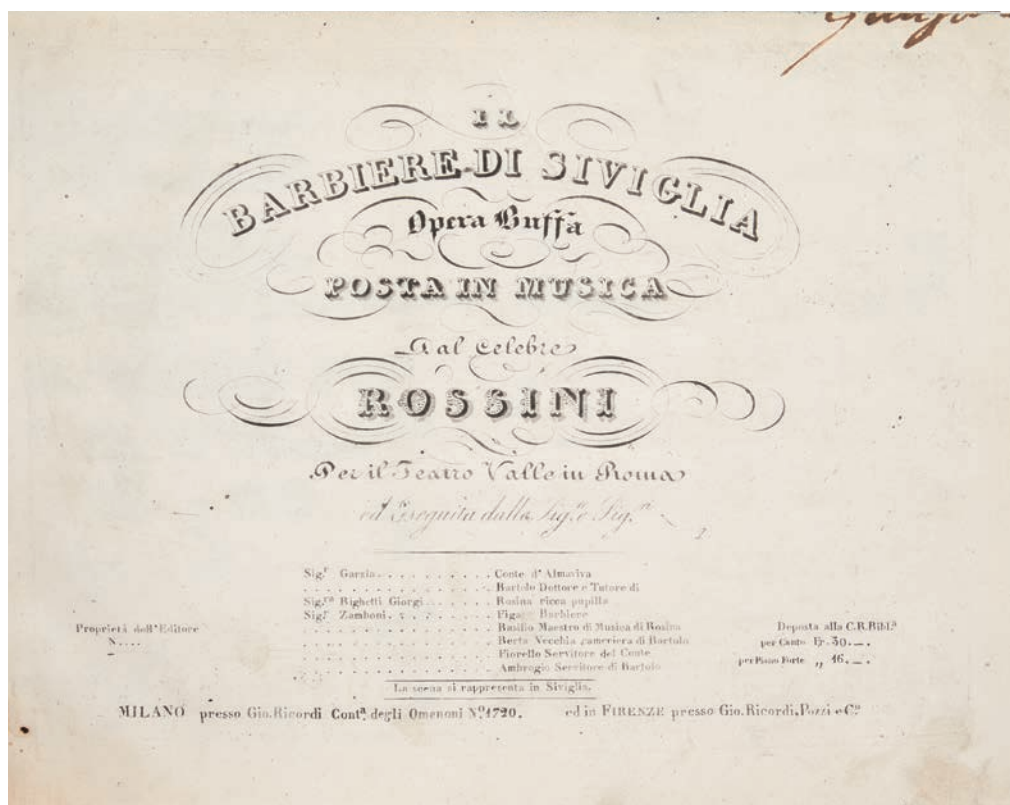 IL
BARBIERE DI SIVIGLIA
Opera Buffa
POSTA IN MUSICA
Dal celebre
ROSSINI
Per il Teatro Valle in Roma
ed Eseguita dalla Sig.ᵉ Sig.ⁿ
Sig.ʳ Garzia . . . . . . . . . . Conte d'Almaviva
. . . . . . . . . . Bartolo Dottore e Tutore di
Sig.ʳᵃ Righetti Giorgi . . . . . . Rosina ricca pupilla
Sig.ʳ Zamboni . . . . . . . . . Figaro Barbiere
. . . . . . . . . . Basilio Maestro di Musica di Rosina
. . . . . . . . . . Berta Vecchia cameriera di Bartolo
. . . . . . . . . . Fiorello Servitore del Conte
. . . . . . . . . . Ambrogio Servitore di Bartolo
Proprietà dell'Editore
N. . . .
Deposta alla C.R.Bibl.ᵃ
per Canto Fr. 30._.
per Piano Forte „ 16._.
La scena si rappresenta in Siviglia.
MILANO presso Gio. Ricordi Cont.ᵃ degli Omenoni N.º 1720. ed in FIRENZE presso Gio. Ricordi, Pozzi e C.º